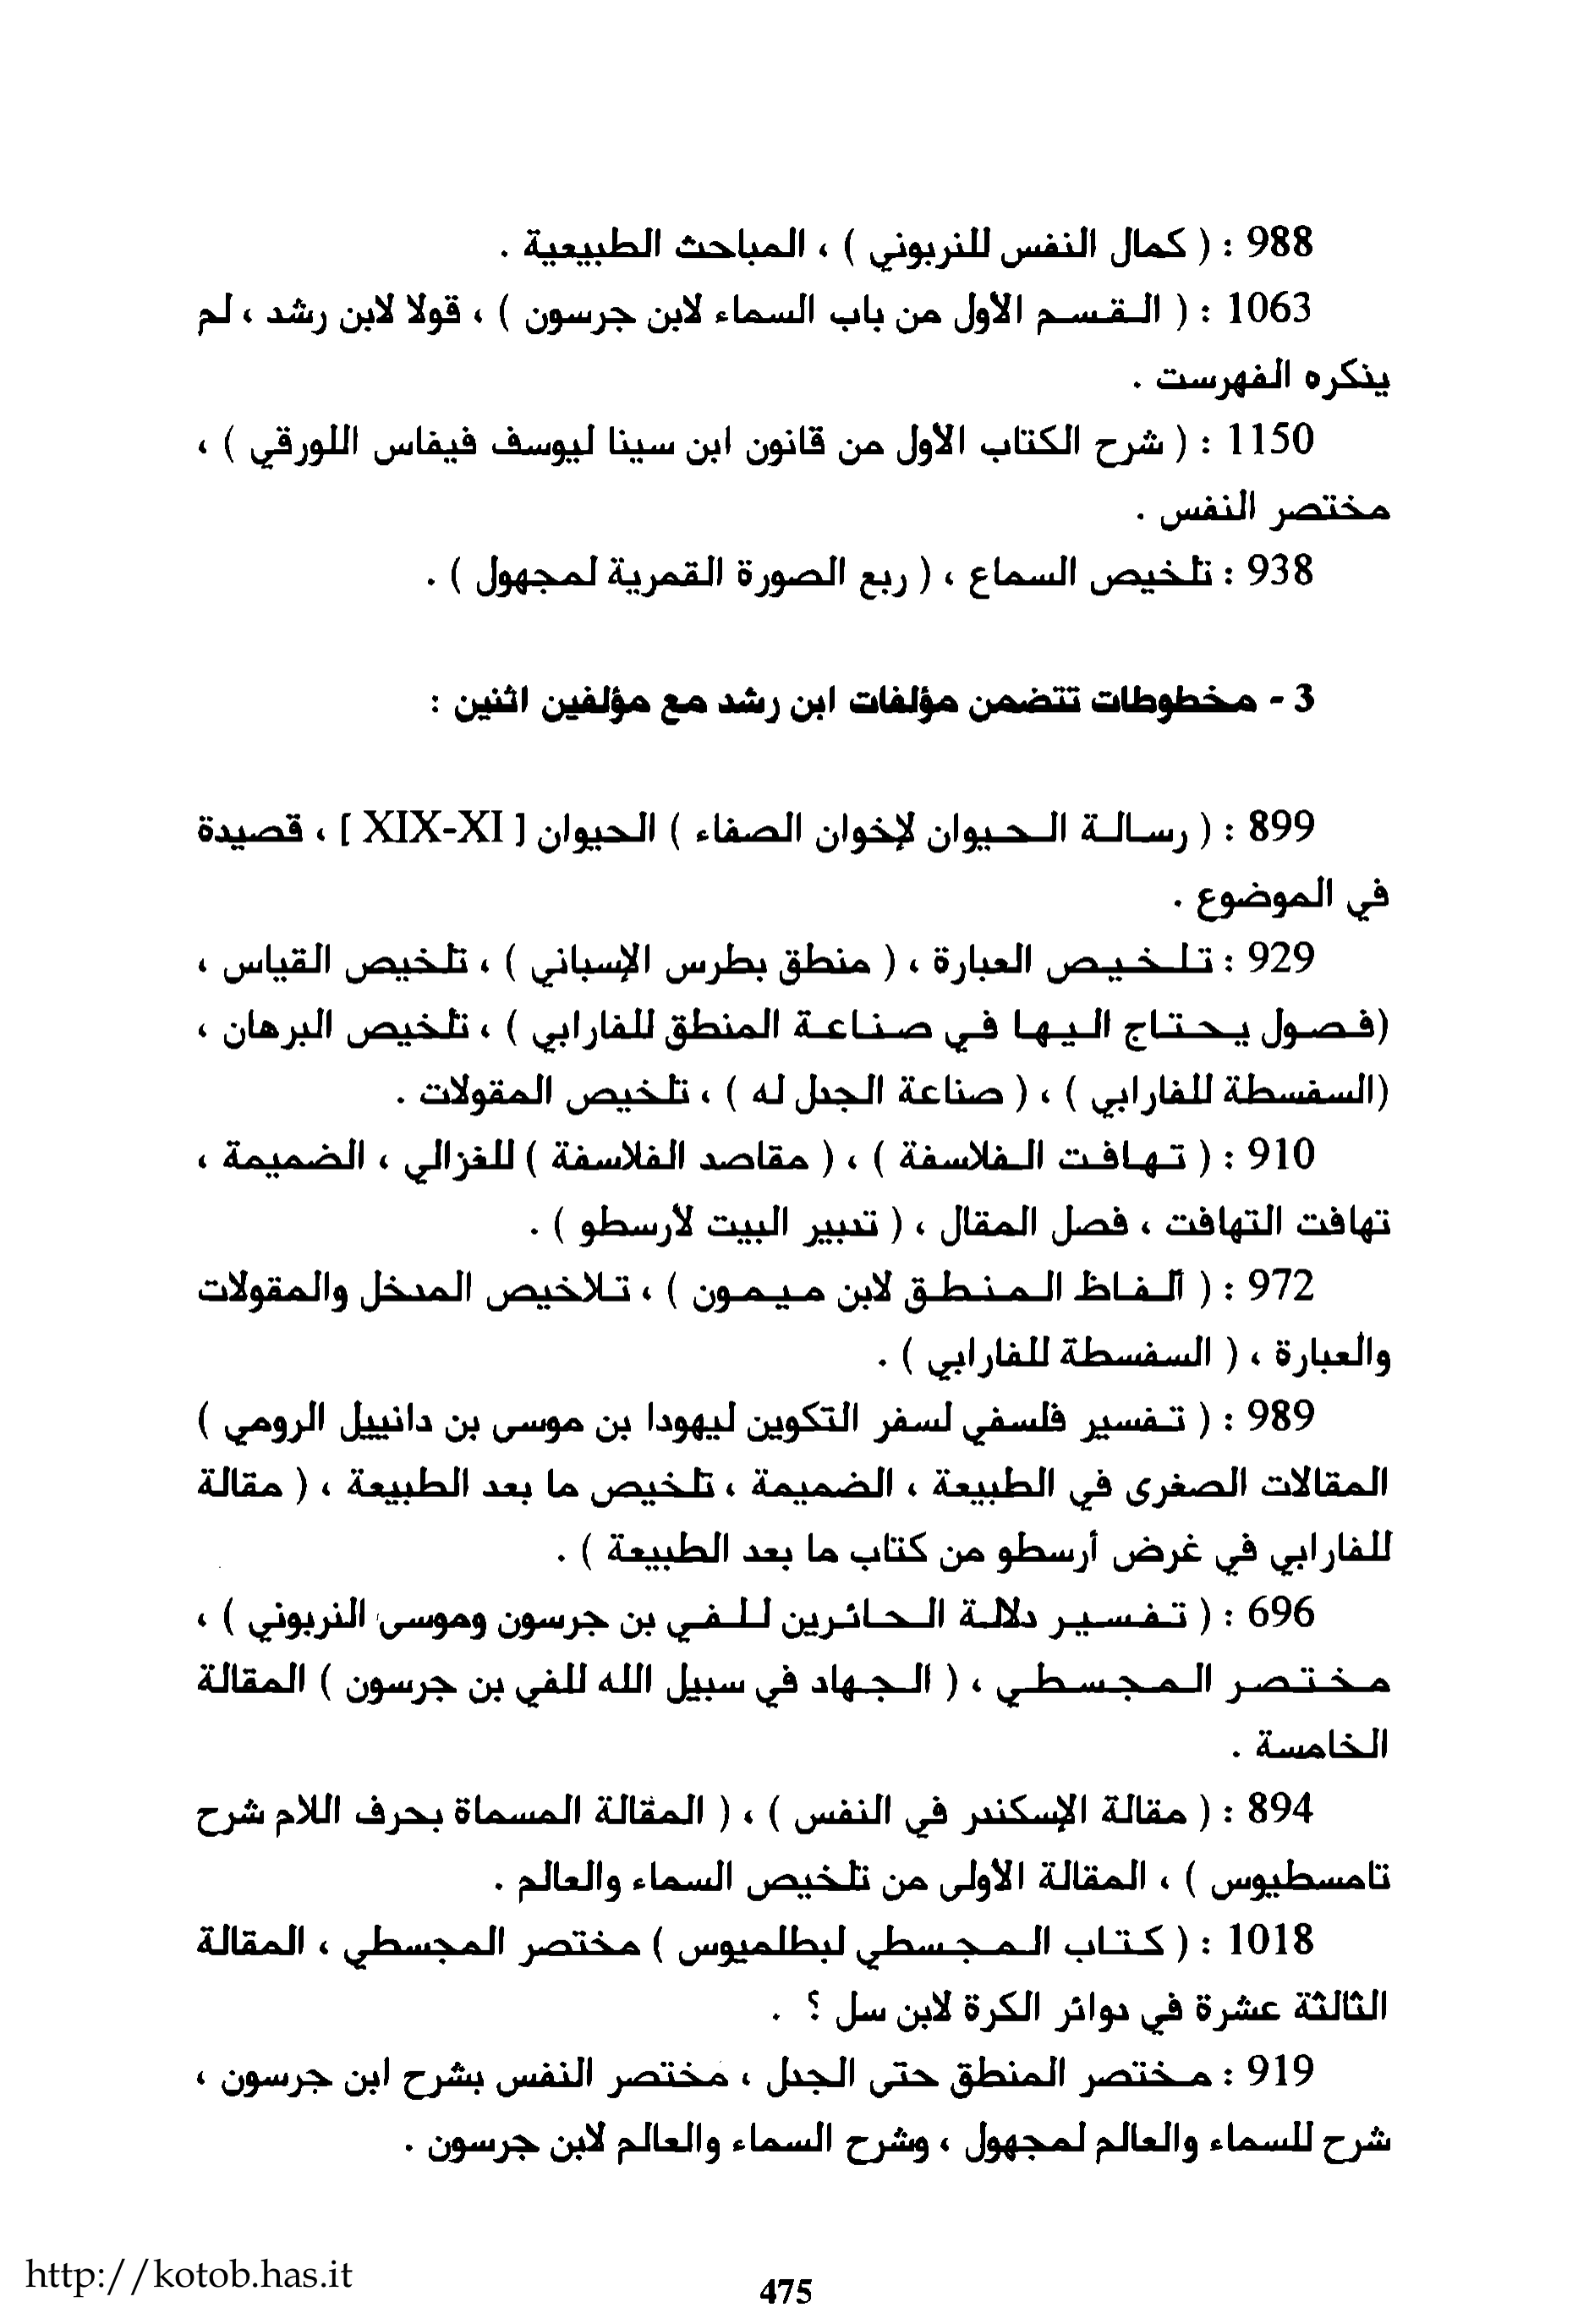 988 : ( كمال النفس للنربوني ) ، المباحث الطبيعية .
1063 : ( القسم الأول من باب السماء لابن جرسون ) ، قولا لابن رشد ، لم
يذكره الفهرست .
1150 : ( شرح الكتاب الأول من قانون ابن سينا ليوسف فيفاس اللورقي ) ،
مختصر النفس .
938 : تلخيص السماع ، ( ربع الصورة القمرية لمجهول ) .
3 - مخطوطات تتضمن مؤلفات ابن رشد مع مؤلفين اثنين :
899 : ( رسالة الحيوان لإخوان الصفاء ) الحيوان [ XIX-XI ] ، قصيدة
في الموضوع .
929 : تلخيص العبارة ، ( منطق بطرس الإسباني ) ، تلخيص القياس ،
(فصول يحتاج اليها في صناعة المنطق للفارابي ) ، تلخيص البرهان ،
(السفسطة للفارابي ) ، ( صناعة الجدل له ) ، تلخيص المقولات .
910 : ( تهافت الفلاسفة ) ، ( مقاصد الفلاسفة ) للغزالي ، الضميمة ،
تهافت التهافت ، فصل المقال ، ( تدبير البيت لأرسطو ) .
972 : ( ألفاظ المنطق لابن ميمون ) ، تلاخيص المدخل والمقولات
والعبارة ، ( السفسطة للفارابي ) .
989 : ( تفسير فلسفي لسفر التكوين ليهودا بن موسى بن دانييل الرومي )
المقالات الصغرى في الطبيعة ، الضميمة ، تلخيص ما بعد الطبيعة ، ( مقالة
للفارابي في غرض أرسطو من كتاب ما بعد الطبيعة ) .
696 : ( تفسير دلالة الحائرين للفي بن جرسون وموسى النربوني ) ،
مختصر المجسطي ، ( الجهاد في سبيل الله للفي بن جرسون ) المقالة
الخامسة .
894 : ( مقالة الإسكندر في النفس ) ، ( المقالة المسماة بحرف اللام شرح
تامسطيوس ) ، المقالة الأولى من تلخيص السماء والعالم .
1018 : ( كتاب المجسطي لبطلميوس ) مختصر المجسطي ، المقالة
الثالثة عشرة في دوائر الكرة لابن سل ؟ .
919 : مختصر المنطق حتى الجدل ، مختصر النفس بشرح ابن جرسون ،
شرح للسماء والعالم لمجهول ، وشرح السماء والعالم لابن جرسون .
http://kotob.has.it
475